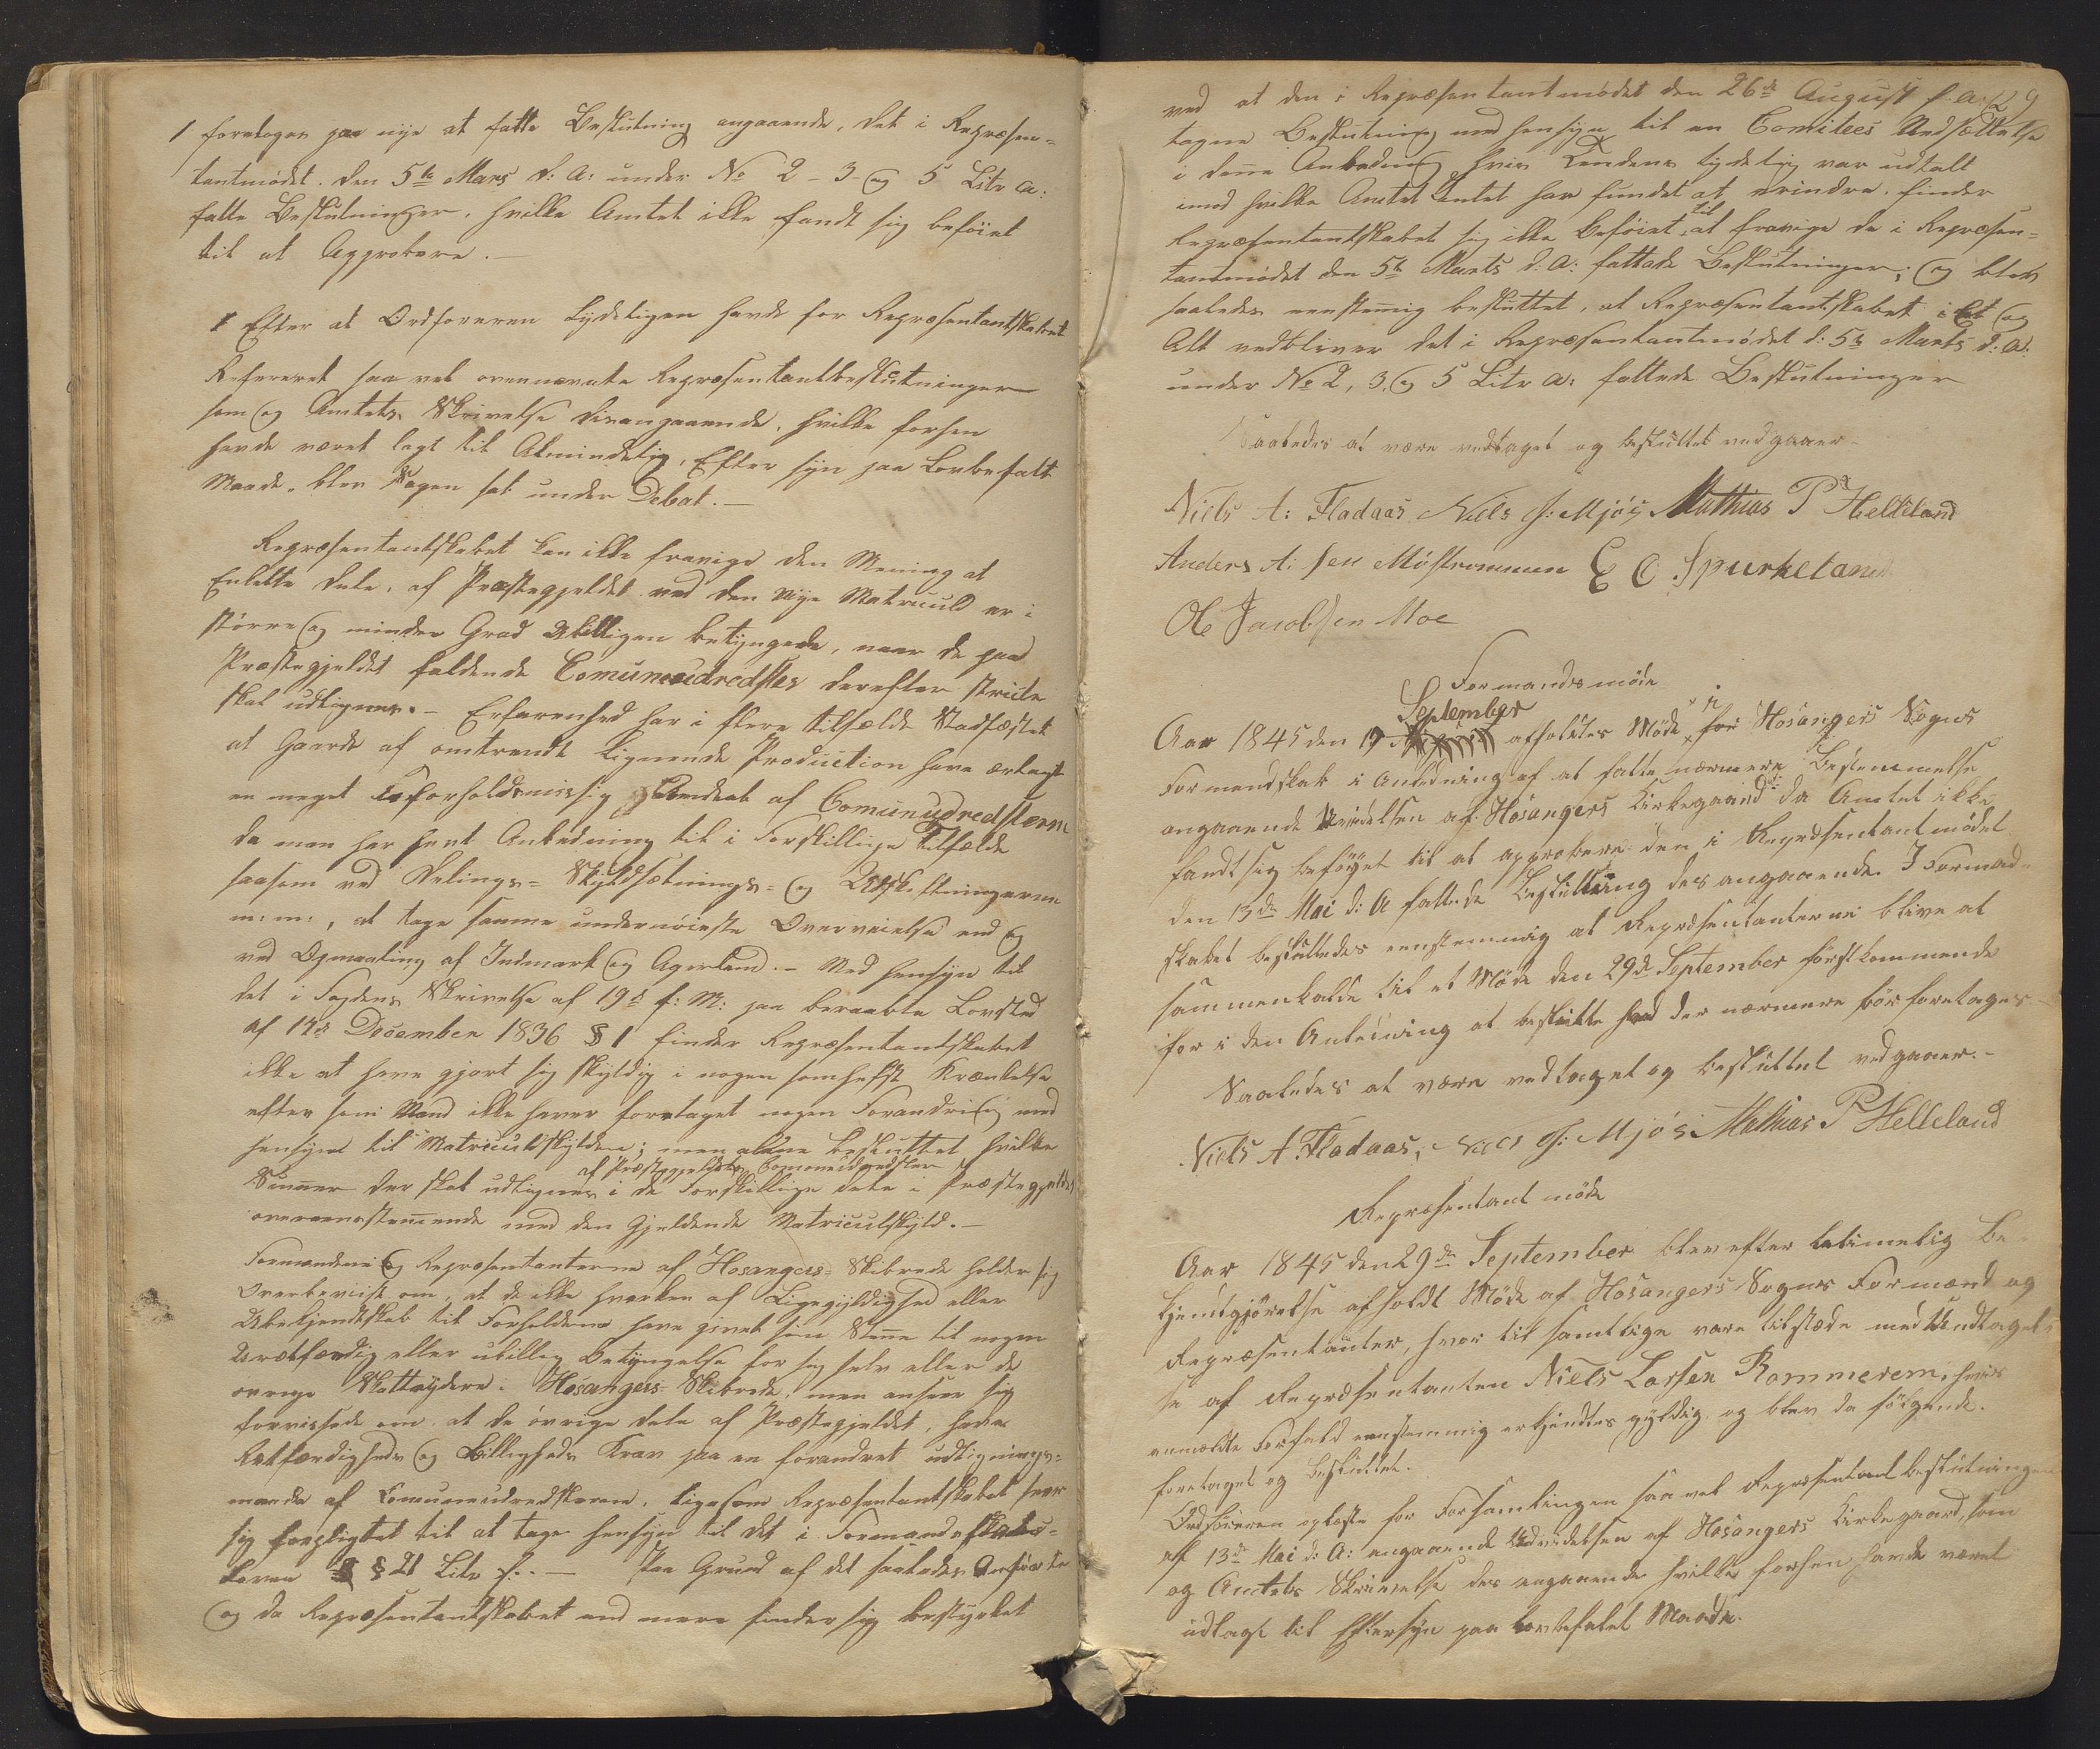 1 foretoges paa nye at fatte Beslutning angaaende, det i Repræsen-
tantmødet den 5te Mars d: A: under No 2 - 3 - og 5 Litr a:
fatte Beslutninger, hvilke Amtet ikke fandt sig beføiet
til at Approbere. —
1 Efter at Ordføreren tydeligen havde for Repræsentantskabet
Refereret saa vel ovennævnte Repræsentantbeslutninger
som og Amtets Skrivelse desangaaende, hvilke forhen
havde været lagt til Almindelig, Efter syn paa Lovbefalt
Maade, blev Sagen sat under Debat. —
Repræsentantskabet kan ikke fravige den Mening at
Enkelte dele, af Præstegjeldet ved den nye Matricul er i
større og mindre Grad Ubilligen betyngede, naar de paa
Præstegjeldet faldende Comuneudredsler derefter stricte
skal udlignes. — Erfarenhed har i flere tilfælde Stadfæstet
at Gaarde af omtrendt lignende Production have ærlagt
en meget uforholdsmessig af Comunudredslerne
da man har havt Anledning til i Forskillige Tilfælde
saasom ved Delings- Skyldsætnings- og Udskiftningerne
m: m:, at tage samme under nøieste Overveielse end og
ved Opmaaling af Indmark og Agerland. — Med hensyn til
det i Fogdens Skrivelse af 19de f: M: paa beraabte Lovsted
af December 1836 § 1 finder Repræsentantskabet
ikke at have gjort sig skyldig i nogen somhelst Krænkelse
efter som Mand ikke haver foretaget nogen Forandring med
hensyn til Matriculskylden; men allene besluttet hvilke
af Præstegjeldets Comuneudredsler
Summer der skal udlignes i de Forskillige dele i Præstegjeldet
overeensstemende med den Gjeldende Matriculskyld. —
Formændene og Repræsentanterne af Hosangers Skibrede holder sig
Overbeviist om, at de ikke hverken af Ligegyldighed eller
Ubekjendtskab til Forholdene have givet sin Stemme til nogen
Uretfærdig eller ubilleg Betyngelse for sig selv eller de
øvrige Skatteydere i Hosangers Skibrede, men anseer sig
forvissede om at de øvrige dele af Præstegjeldet, have
Retfærdigheds og Billigheds Krav paa en forandret udlignings-
maade af Comuneudredslerne, ligesom Repræsentantskabet seer
sig forpligtet til at tage hensyn til det i Formandskabs-
Loven § 21 Litr f. . — Paa Grund af det saaledes Anførte
og da Repræsentantskabet end mere finder sig bestyrket
29
ved at den i Repræsentantmødet den 26de August f. a:
tagne Beslutning med hensyn til en Comitees Nedsættelse
i denne Anledning hvis Tendens tydelig var udtalt
imod hvilke Amtet Intet har fundet at erindre, finder
Repræsentantskabet sig ikke beføiet til at fravige de i Repræsen-
tantmødet den 5te Marts d: A: fattede Beslutninger; og blev
saaledes eenstemig besluttet, at Repræsentantskabet i Et og
Alt vedbliver det i Repræsentantmødet d: 5te Marts d: A:
under No 2, 3, og 5 Litr a: fattede Beslutninger
Saaledes at være vedtaget og besluttet vedgaaer —
Niels A: Fladaas Niels J: Mjøs Mathias P Helleland
Anders A: sen Mostrommen E O Spurkeland
Ole Jacobsen Moe
Formandsmøde
September
Aar 1845 den 19 afholdtes Møde i for Hosangers Sogns
Formandskab i Anledning af at fatte nærmere Bestemmelse
angaaende Udvidelsen af Hosangers Kirkegaard da Amtet ikke
fandt sig beføyet til at approbere den i Repræsentantmødet
den 13de Mai d: A fattede Beslutning des angaaende. I Formand-
skabet besluttedes eenstemmig at Repræsentanterne blive at
sammenkalde til et Møde den 29de September førstkommende
for i den Anledning at beslutte hvad der nærmere bør foretages —
Saaledes at være vedtaget og besluttet vedgaaer. —
Niels A. Fladaas, Niels J: Mjøs Mathias P Helleland
Repræsentant møde
Aar 1845 den 29de September blev efter betimelig Be-
kjendtgjørelse afholdt Møde af Hosangers Sogns Formænd og
Repræsentanter, hvor til samtlige vare tilstæde med Undtagel-
se af Repræsentanten Niels Larsen Rommerem, hvis
anmeldte Forfald eenstemmig erkjendtes gyldig og blev da følgende.
foretaget og besluttet.
Ordføreren oplæste for Forsamlingen saavel Repræsentant beslutningen
af 13de Mai d: A: angaaende Udvidelsen af Hosangers Kirkegaard, som
og Amtets Skrivelse des angaaende hvilke forhen havde været
udlagt til Eftersyn paa lovbefalet Maade.